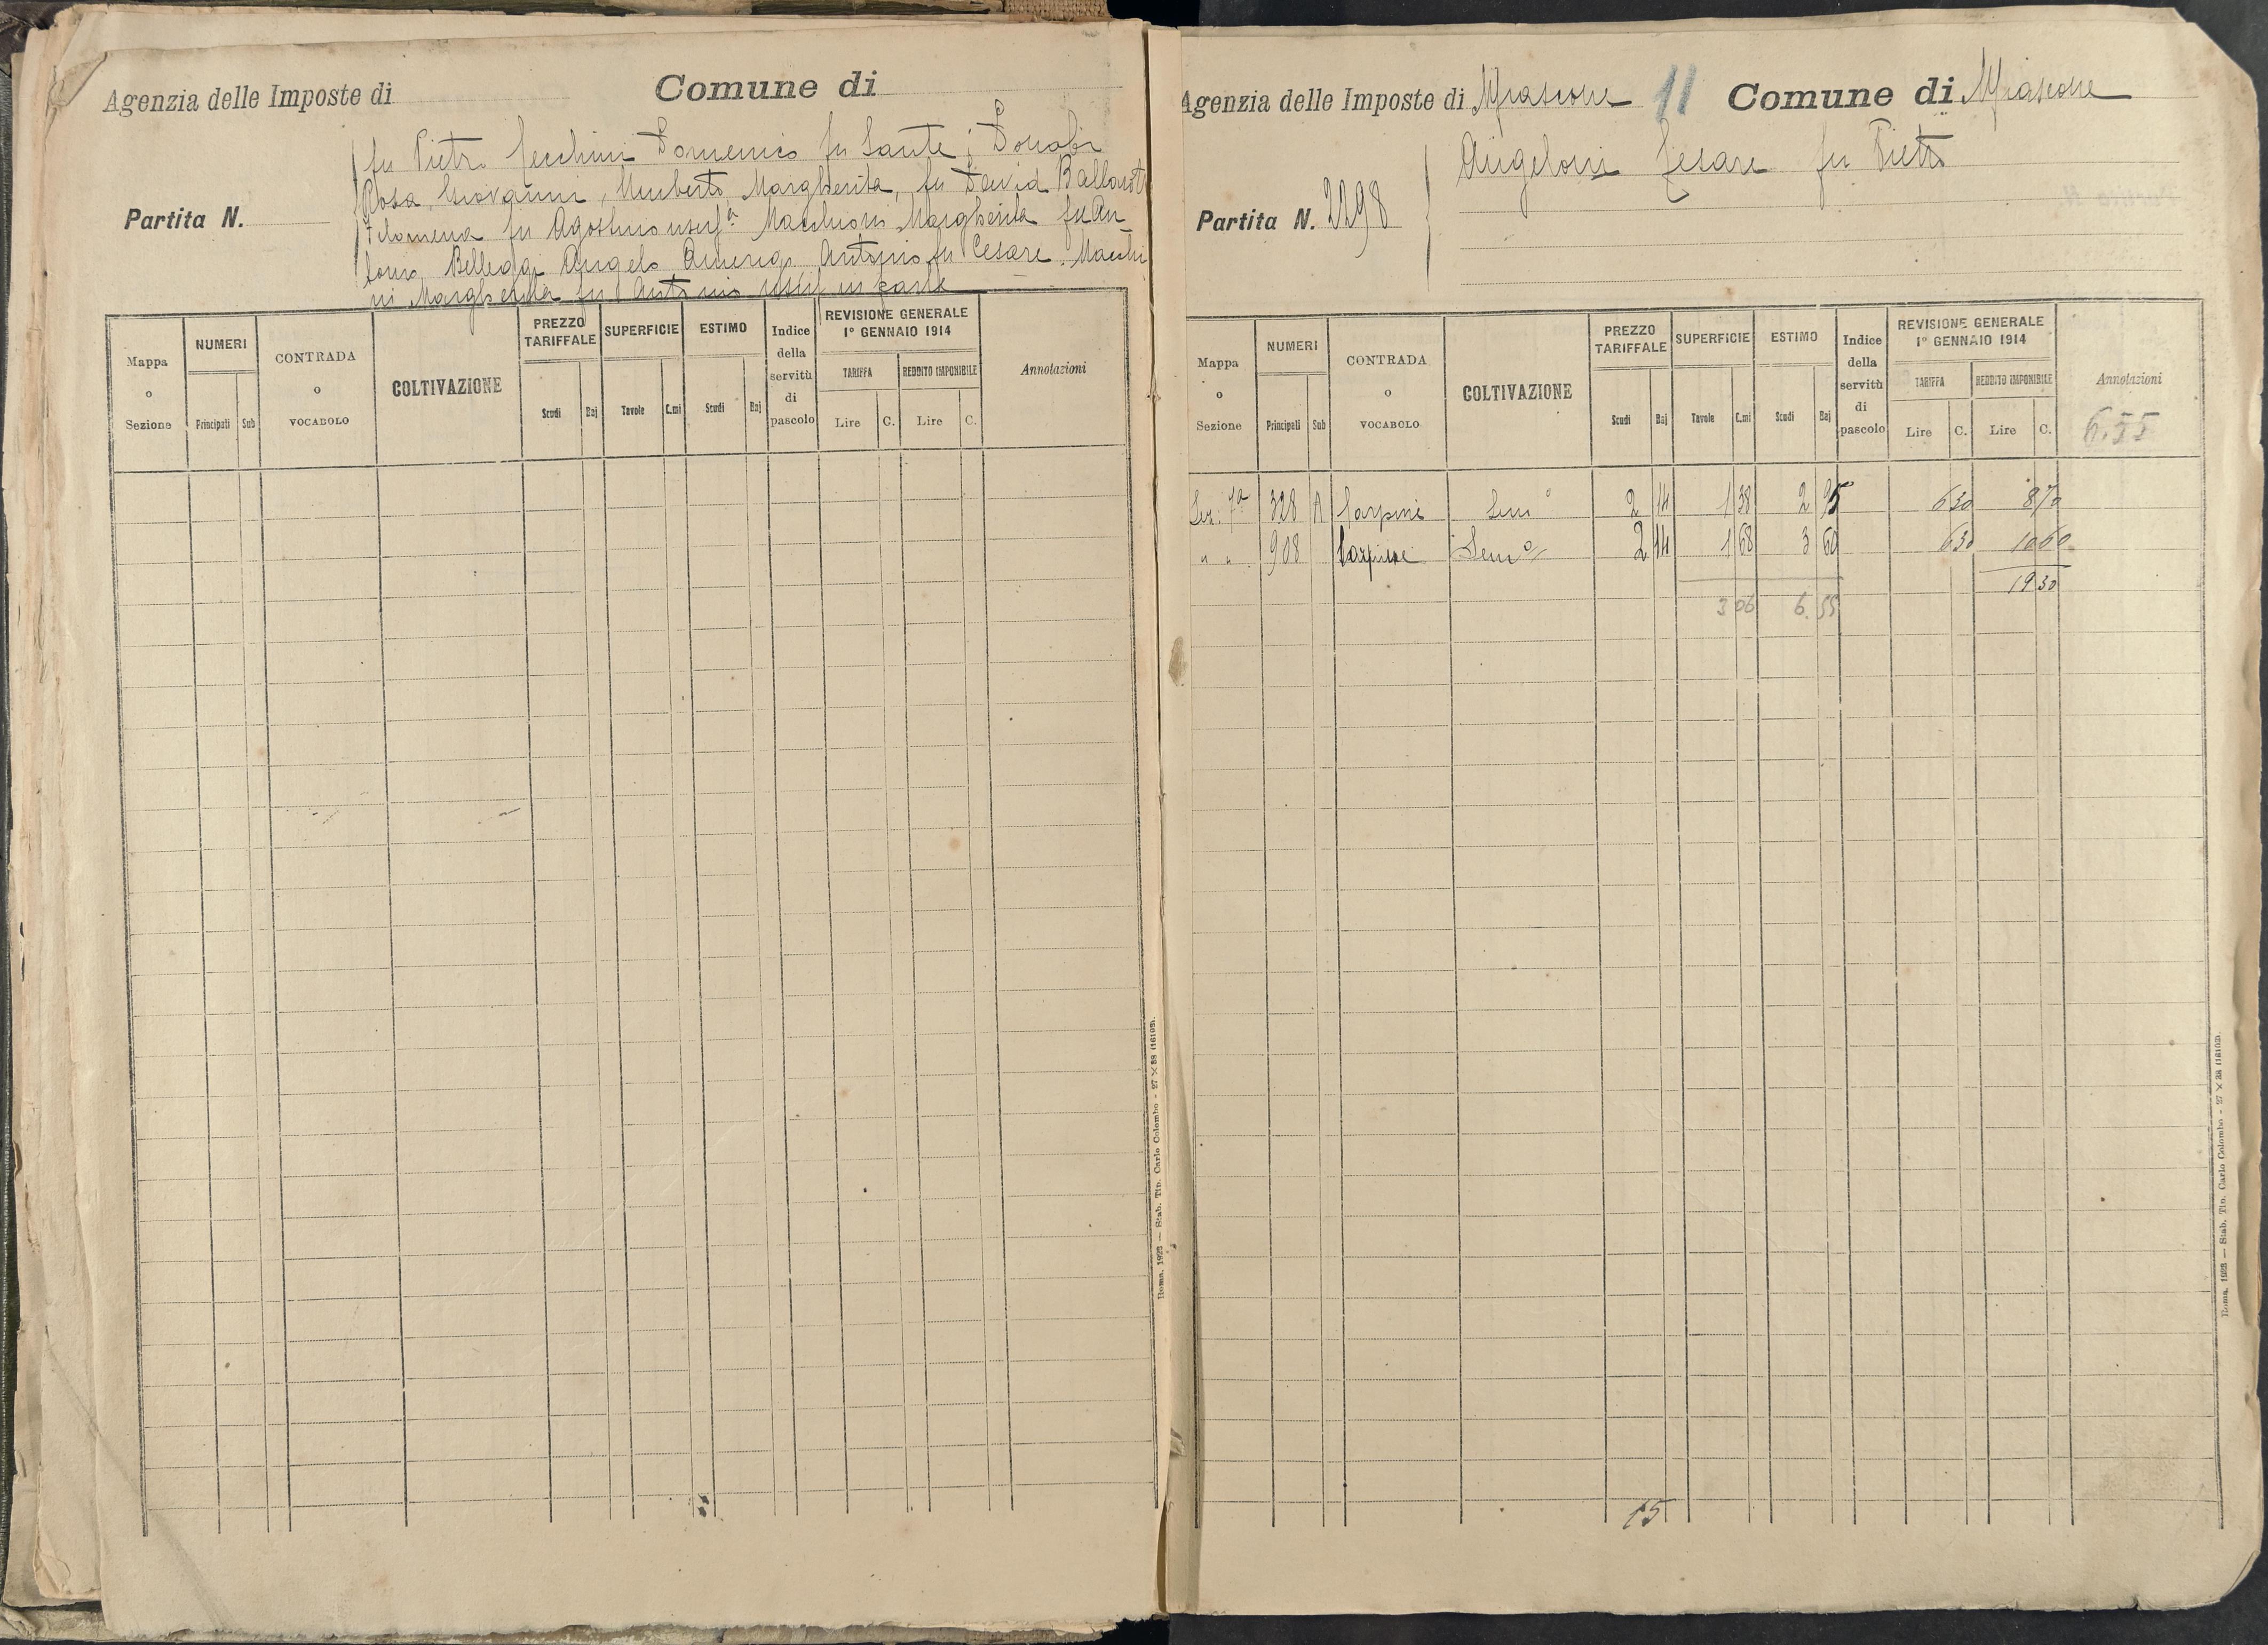 Agenzia delle Imposte di
Comune di
fu Pietro Cecchini Domenico fu Sante; Donati
Rosa, Giovanni, Umberto, Margherita, fu David Ballarot
Partita N.
Filomena fu Agostino usuf.a Macchioni Margherita fu An
tonio, Bellegg Angelo Amerigo Antonio fu Cesare. Macchi
ni Margherita fu Antonio usuf in parte
Mappa o Sezione
NUMERI
Principali Sub
CONTRADA o VOCABOLO
COLTIVAZIONE
PREZZO TARIFFALE
Scudi Baj
SUPERFICIE
Tavole C.mi
ESTIMO
Scudi Baj
Indice della servitù di pascolo
REVISIONE GENERALE
1° GENNAIO 1914
TARIFFA REDDITO IMPONIBILE
Lire C. Lire C.
Annotazioni
Roma, 1923 — Stab. Tip. Carlo Colombo - 27 × 38 (16103).
Agenzia delle Imposte di 11 Comune di
Angeloni Cesare fu Pietro
Partita N. 2298
Mappa o Sezione
NUMERI
Principali Sub
CONTRADA o VOCABOLO
COLTIVAZIONE
PREZZO TARIFFALE
Scudi Baj
SUPERFICIE
Tavole C.mi
ESTIMO
Scudi Baj
Indice della servitù di pascolo
REVISIONE GENERALE
1° GENNAIO 1914
TARIFFA REDDITO IMPONIBILE
Lire C. Lire C.
Annotazioni
6.55
Sez. 1a 328 A Carpine Sem o 2 14 1 38 2 95 6 30 8 70
" " 908 Carpine Sem o 2 14 1 68 3 60 6 30 10 60
19 30
3 06 6.55
15
Roma, 1923 — Stab. Tip. Carlo Colombo - 27 × 38 (16103).